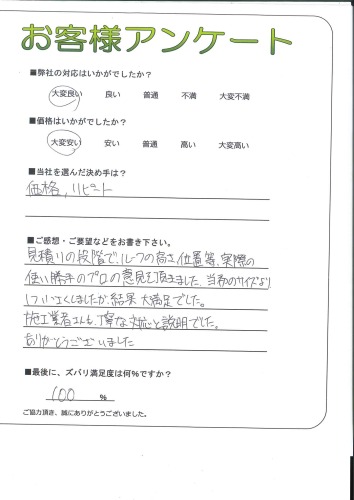 お客様アンケート
■弊社の対応はいかがでしたか？
大変良い 良い 普通 不満 大変不満
■価格はいかがでしたか？
大変安い 安い 普通 高い 大変高い
■当社を選んだ決め手は？
価格，リピート
■ご感想・ご要望などをお書き下さい。
見積りの段階で、ルーフの高さ、位置等、実際の
使い勝手のプロの意見を頂きました。当初のサイズより
大きくしましたが、結果 大満足でした。
施工業者さんも、丁寧な対応と説明でした。
ありがとうございました
■最後に、ズバリ満足度は何%ですか？
100 %
ご協力頂き、誠にありがとうございました。